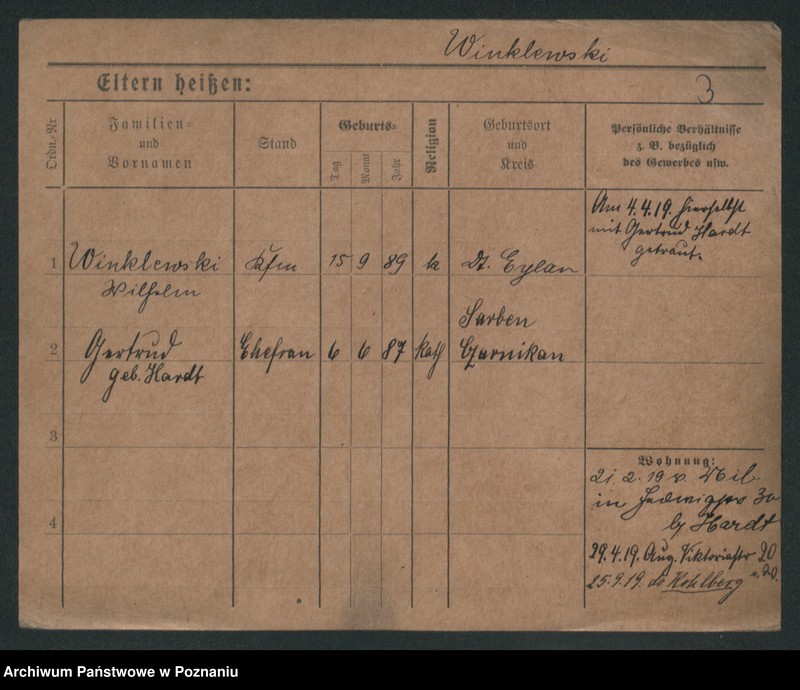 Winklewski
Eltern heißen:
3
Ordn.-Nr
Familien-
und
Vornamen
Stand
Geburts-
Tag
Monat
Jahr
Religion
Geburtsort
und
Kreis
Persönliche Verhältnisse
z. B. bezüglich
des Gewerbes usw.
Am 4.4.19. hierselbst
mit Gertrud Hardt
getraut.
1 Winklewski Kfm 15 9 89 k Dt. Eylau
Wilhelm
Sarben
2 Gertrud Ehefrau 6 6 87 Kath Czarnikau
geb. Hardt
3
4
Wohnung:
21.2.19 v. Mil
in 30
by Hardt
29.4.19. Aug. Viktoriastr 20
25.9.19. Kohlberg
Archiwum Państwowe w Poznaniu